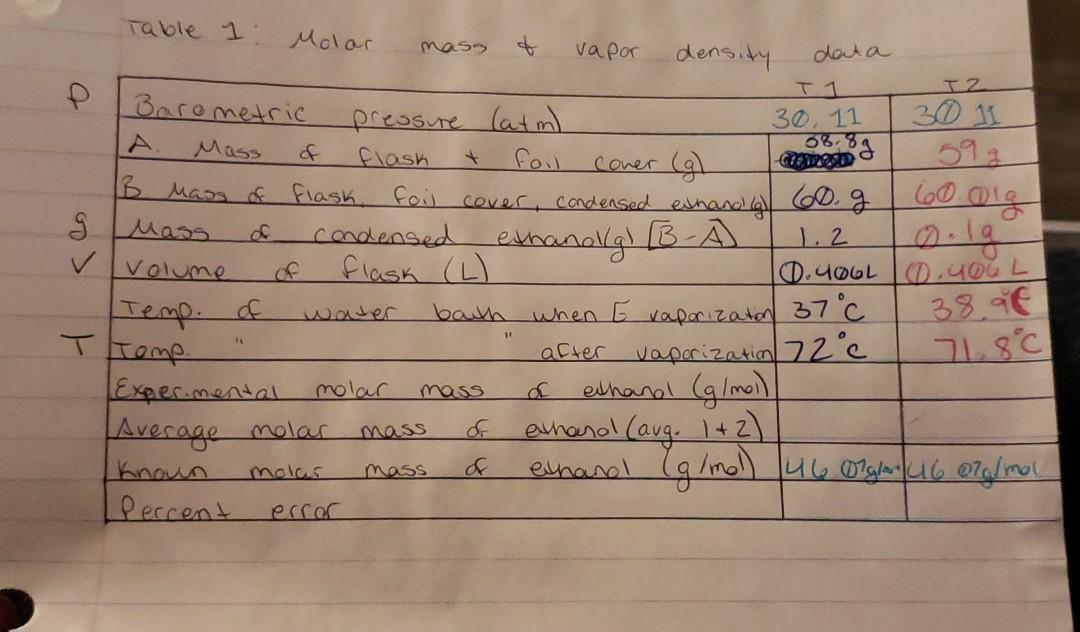 Table 1: Molar mass & vapor density data
T1 T2
P Barometric pressure (atm) 30.11 30.11
A. Mass of flask + foil cover (g) 58.8g 59g
B Mass of flask, foil cover, condensed ethanol(g) 60.g 60.01g
g Mass of condensed ethanol(g) [B-A] 1.2 0.1g
V Volume of flask (L) 0.406L 0.406L
Temp. of water bath when E vaporization 37°C 38.9°C
T Temp. " " after vaporization 72°C 71.8°C
Experimental molar mass of ethanol (g/mol)
Average molar mass of ethanol (avg. 1+2)
Known molar mass of ethanol (g/mol) 46.07g/mol 46.07g/mol
Percent error